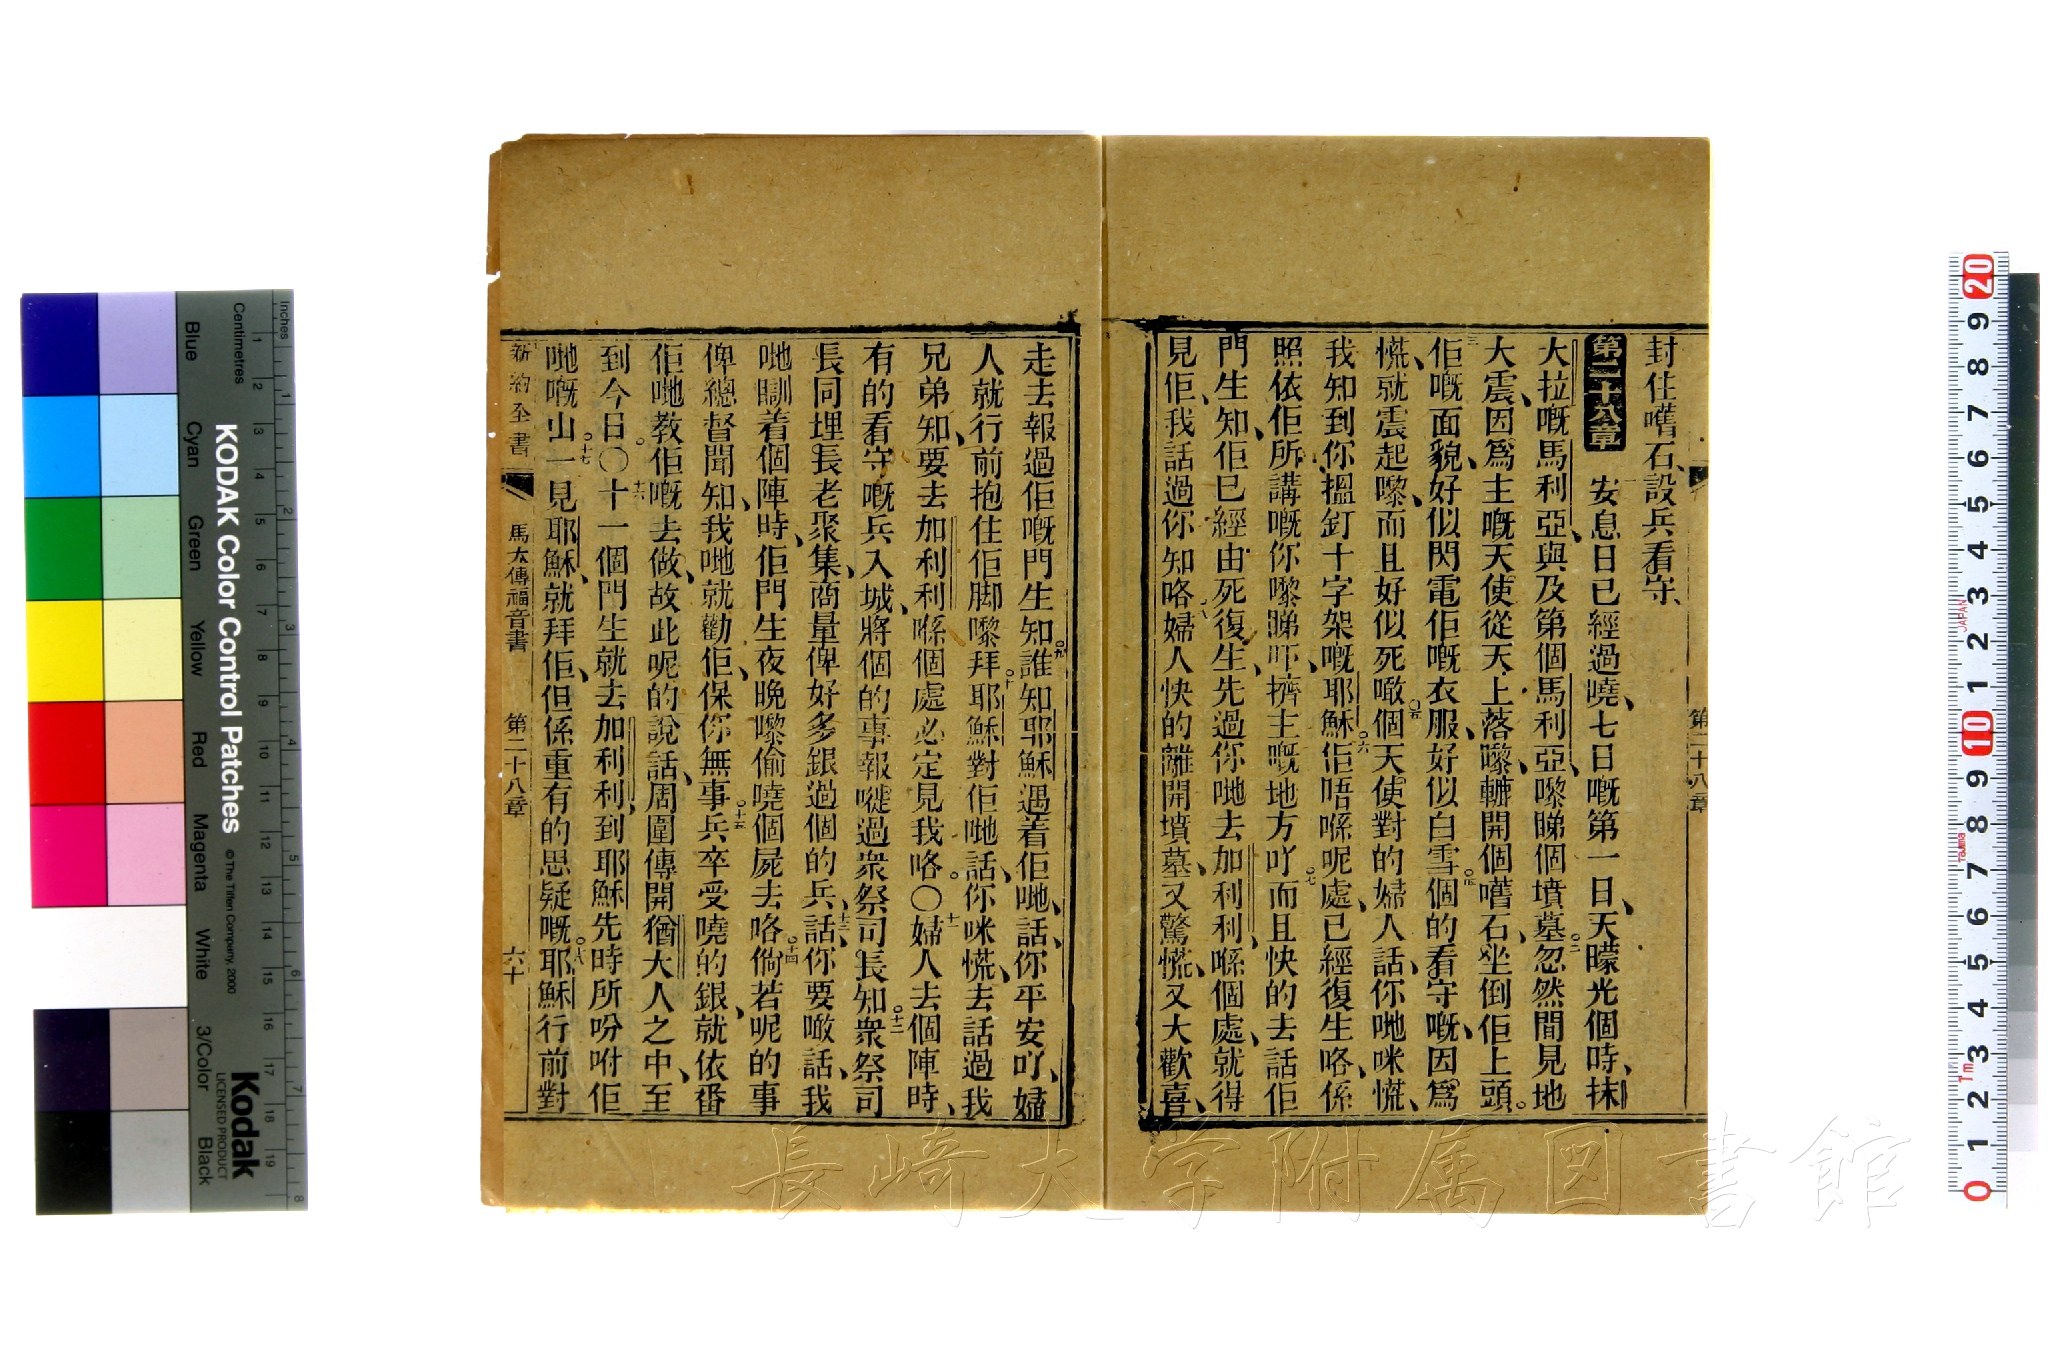 封住嚿石、設兵看守、
第二十八章 一安息日已經過嘵、七日嘅第一日、天矇光個時、抹
大拉嘅馬利亞、與及第個馬利亞、嚟睇個墳墓。二忽然間見地
大震、因爲主嘅天使從天上落嚟、轆開個嚿石、坐倒佢上頭。
三佢嘅面貌、好似閃電、佢嘅衣服、好似白雪。四個的看守嘅、因爲
慌、就震起嚟、而且好似死噉。五個天使對的婦人話、你哋咪慌、
我知到你搵釘十字架嘅耶穌。六佢唔喺呢處、已經復生咯、係
照依佢所講嘅、你嚟睇吓、擠主嘅地方吖。七而且快的去話佢
門生知、佢已經由死復生、先過你哋去加利利、喺個處、就得
見佢、我話過你知咯。八婦人快的離開墳墓、又驚慌、又大歡喜、
走去報過佢嘅門生知。九誰知耶穌遇着佢哋、話、你平安吖、婦
人就行前抱住佢脚嚟拜。十耶穌對佢哋話、你咪慌、去話過我
兄弟知、要去加利利、喺個處必定見我咯。○十一婦人去個陣時、
有的看守嘅兵入城、將個的事報嘥過衆祭司長知。十二衆祭司
長同埋長老聚集、商量俾好多銀過個的兵、十三話、你要噉話、我
哋瞓着個陣時、佢門生夜晚嚟偷嘵個屍去咯。十四倘若呢的事
俾總督聞知、我哋就勸佢、保你無事。十五兵卒受嘵的銀、就依番
佢哋教佢嘅去做、故此呢的說話、周圍傳開猶大人之中、至
到今日。○十六十一個門生就去加利利、到耶穌先時所吩咐佢
哋嘅山。十七一見耶穌、就拜佢、但係重有的思疑嘅。十八耶穌行前對
新約全書 馬太傳福音書 第二十八章 六十
第二十八章
Inches
Centimetres
KODAK Color Control Patches
© The Tiffen Company, 2000
Kodak
LICENSED PRODUCT
Blue Cyan Green Yellow Red Magenta White 3/Color Black
1 2 3 4 5 6 7 8 9 10 11 12 13 14 15 16 17 18 19
1 2 3 4 5 6 7 8
20 9 8 7 6 5 4 3 2 1 10 9 8 7 6 5 4 3 2 1 0
JAPAN
Tajima
Tm
長崎大学附属図書館